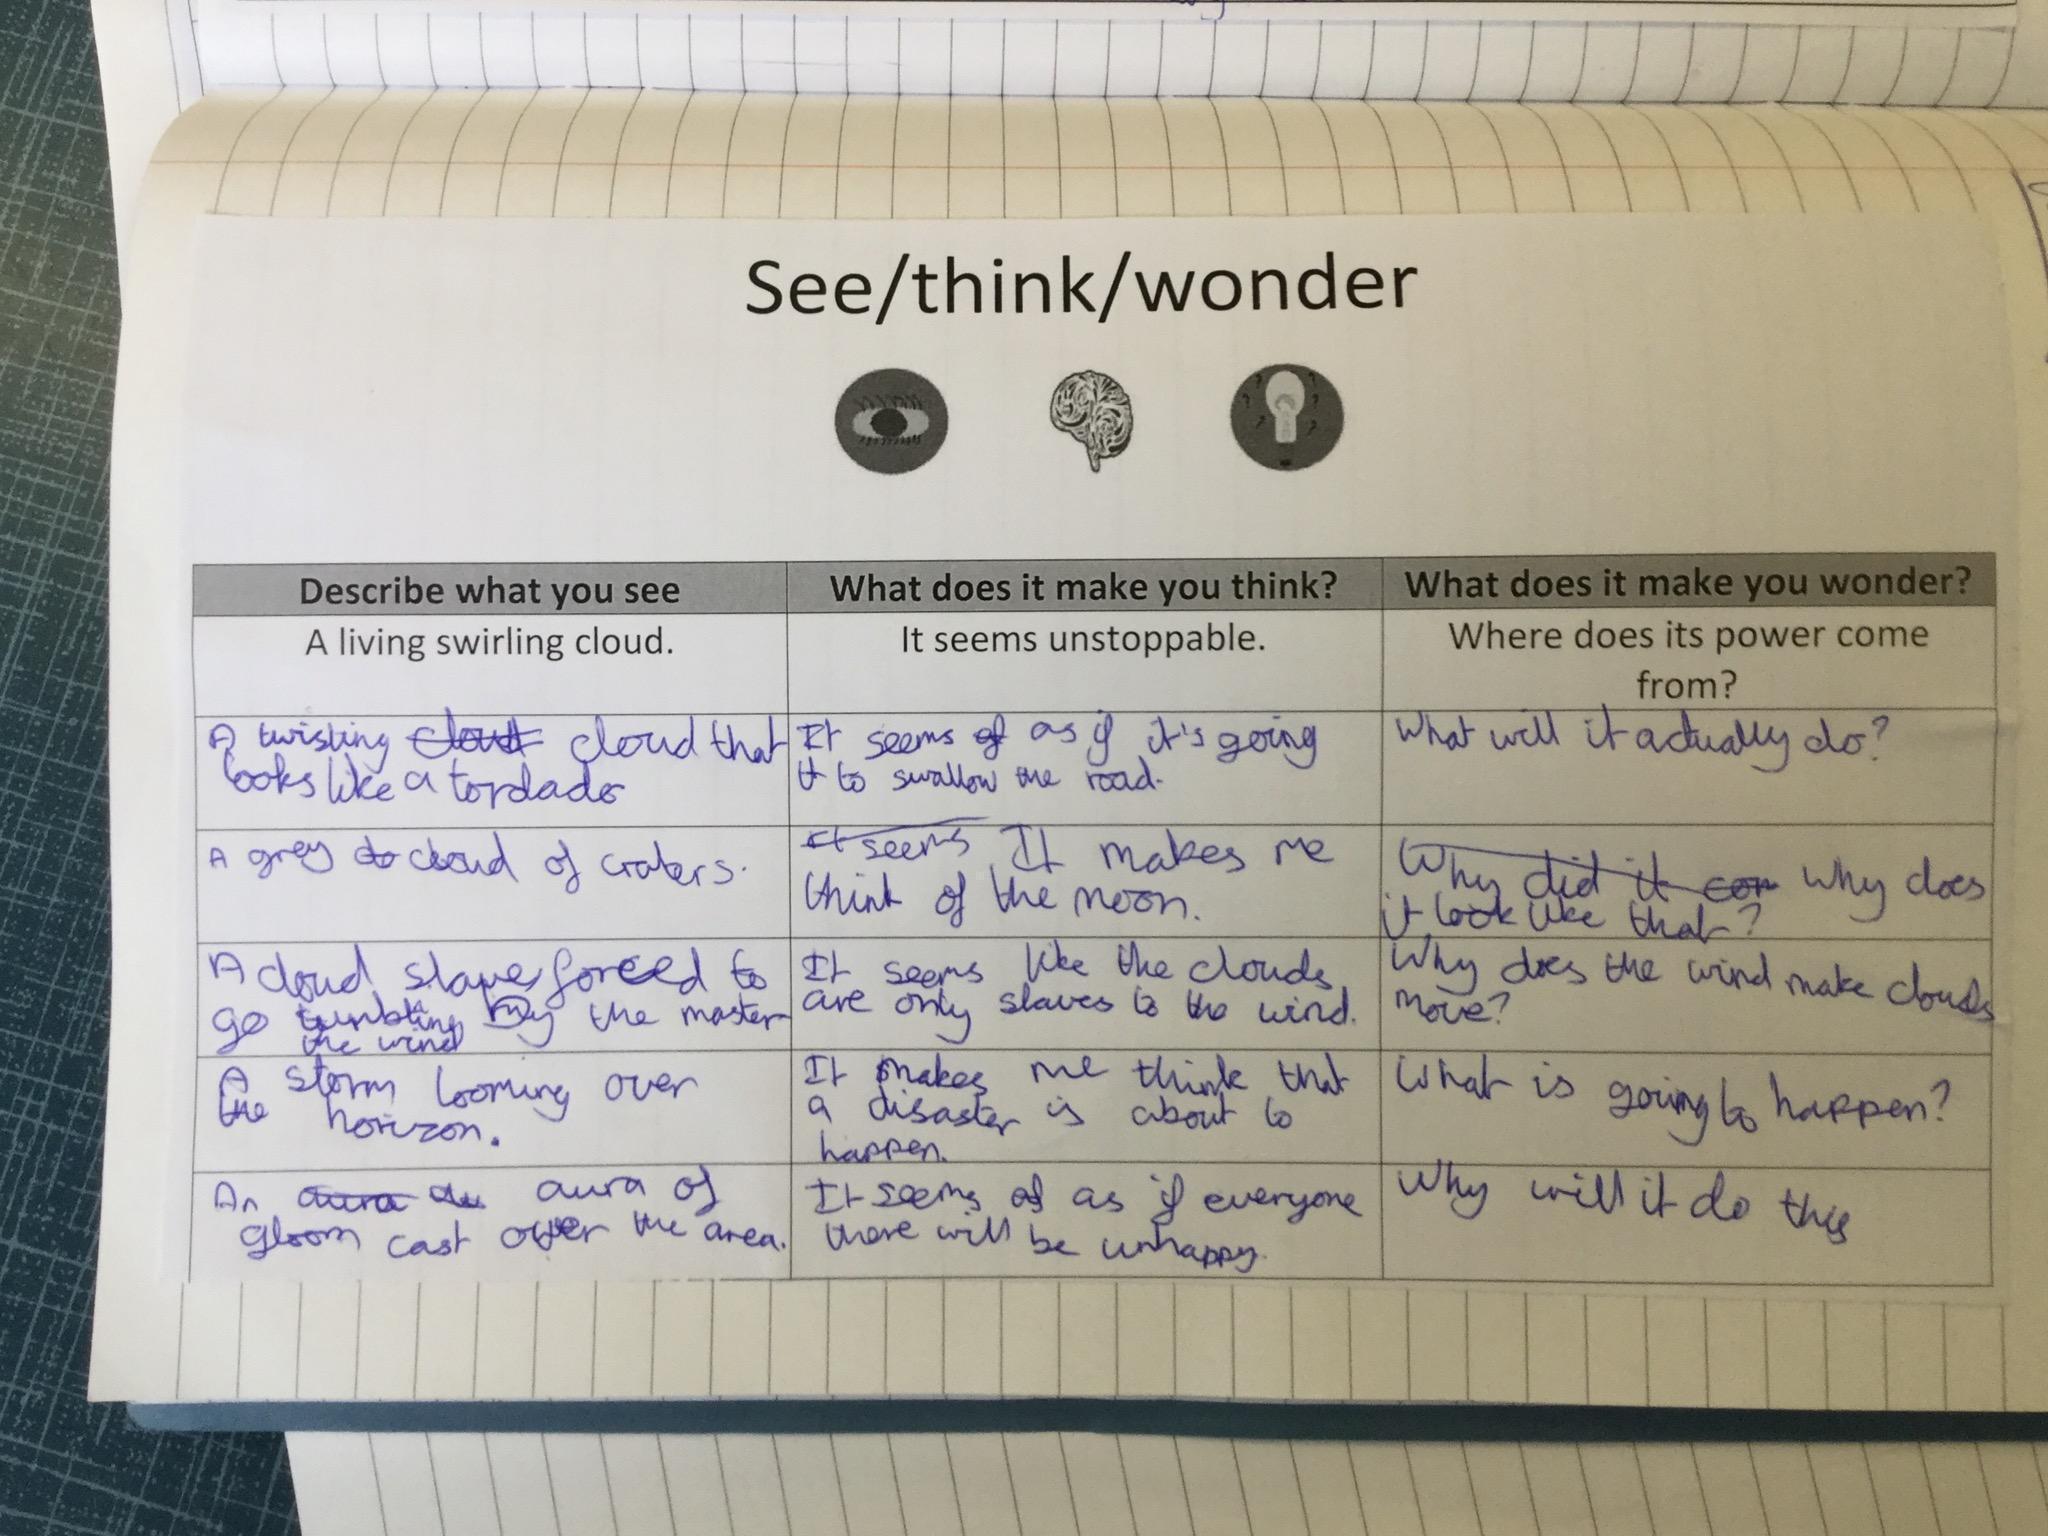 See/think/wonder
Describe what you see
What does it make you think?
What does it make you wonder?
A living swirling cloud.
It seems unstoppable.
Where does its power come
from?
A twisting cloud cloud that
looks like a tordado
It seems of as if it's going
to swallow the road.
What will it actually do?
A grey cloud of craters.
It seems It makes me
think of the moon.
Why did it com why does
it look like that?
A cloud slave forced to
go tumbling by the master
the wind
It seems like the clouds
are only slaves to the wind.
Why does the wind make clouds
move?
A storm looming over
the horizon.
It makes me think that
a disaster is about to
happen.
What is going to happen?
An aura aura of
gloom cast over the area.
It seems of as if everyone
there will be unhappy.
Why will it do this